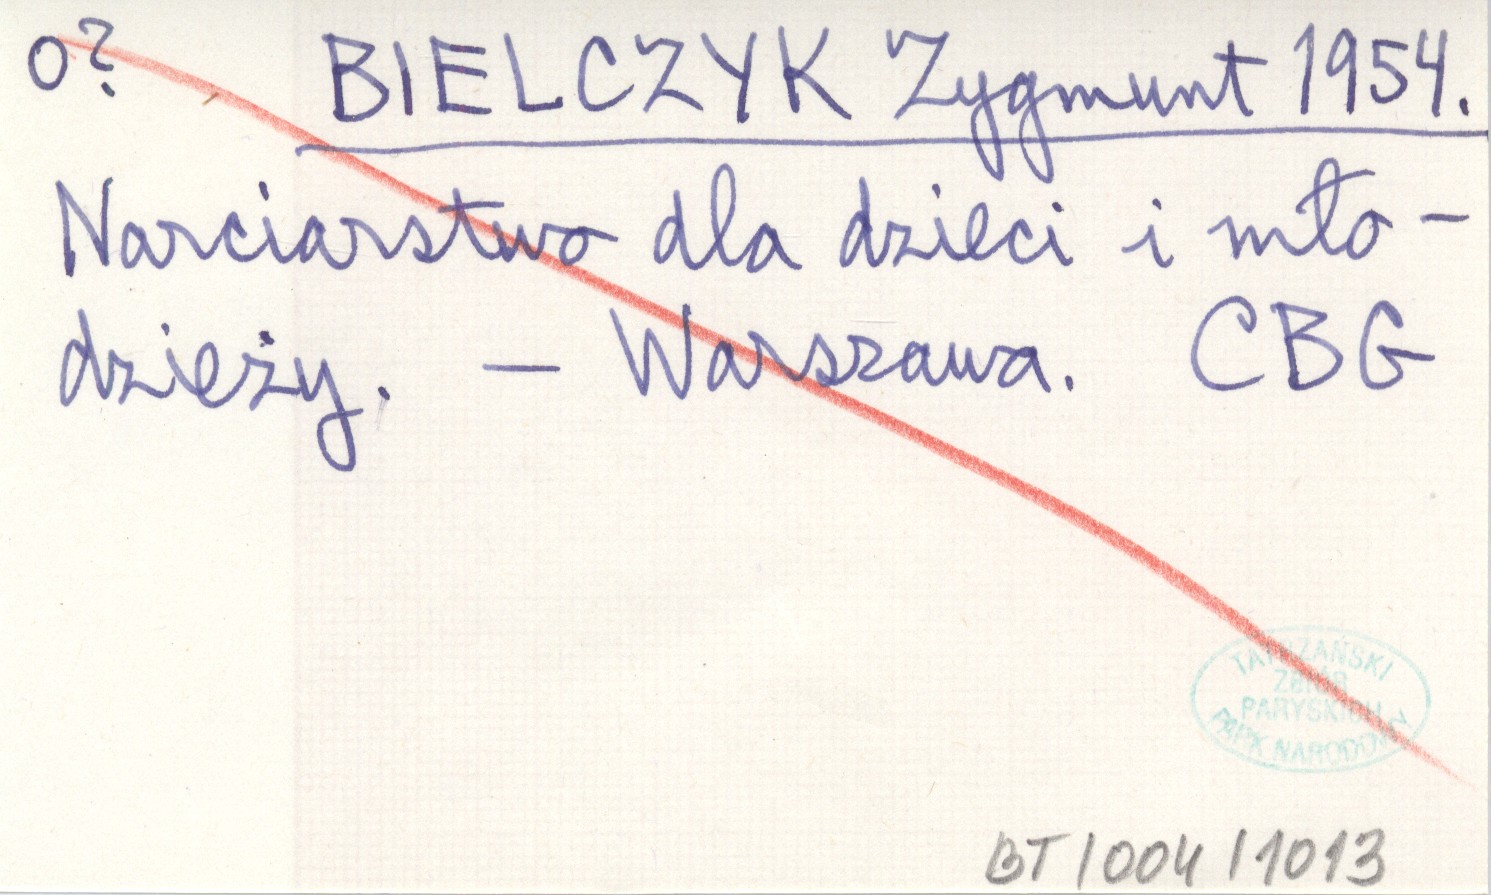 o? BIELCZYK Zygmunt 1954.
Narciarstwo dla dzieci i mło-
dzieży. – Warszawa. CBG
TATRZAŃSKI
Zbiór
PARYSKICH
PARK NARODOWY
BT/004/1013